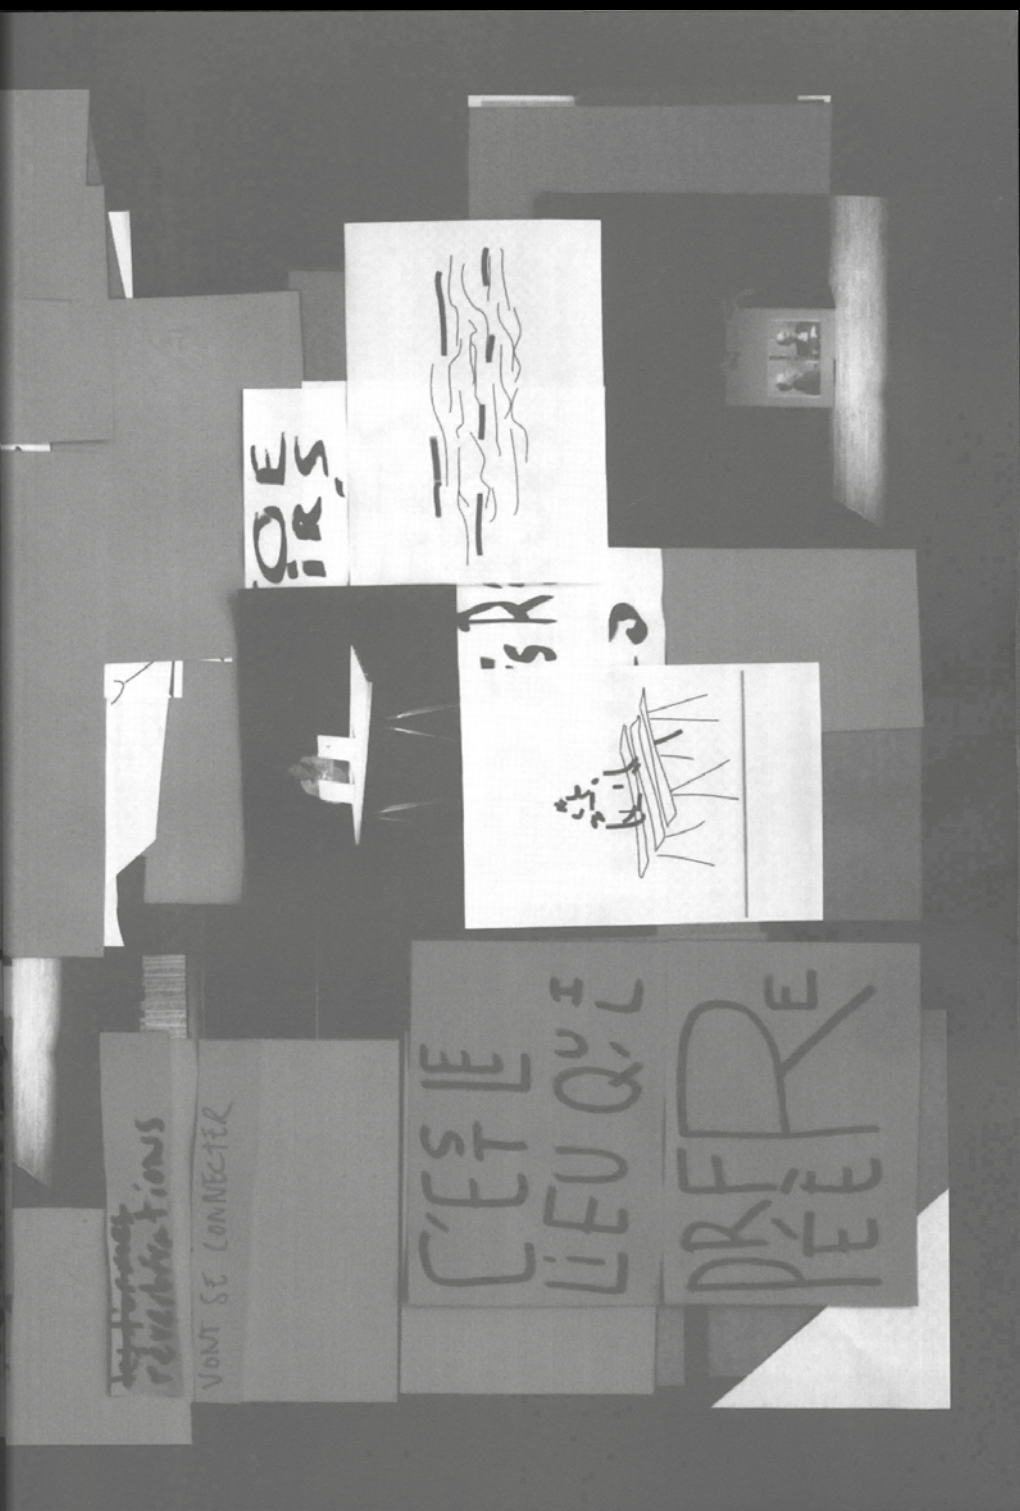 réverbérations
VONT SE CONNECTER
OE
iRS
C'EST LE
LiEU QU'IL
PRÉFÈRE